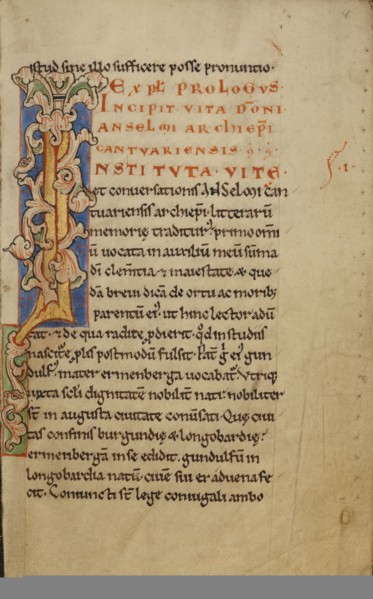 istud sine illo sufficere posse pronuntio.
Expl PROLOGVS.
INCIPIT VITA DONI
ANSELMI ARCHIEPI
CANTVARIENSIS
INSTITUTA VITE
et conversationis ANSELMI CAN
tuariensis archiepi litterarū
memorię traditur. primo om̄i
ū vocata in auxiliū meū sūma
dī clem̄tia & maiestate & que
dā brevi dicā de ortu ac morib;
parentū ei', ut hinc lector adu
tat & de qua radice pdierit qd in studiis
nascit plis postmodū fulsit. Pat ei gun
dulf', mater ermenberga vocabat. Utriq;
juxta scli dignitatē nobilit nati nobiliter
st in augusta civitate conusati. Que civi
tas confinis burgundię & longobardię:
ermenbergā in se edidit. gundulfū in
longobardia natū, civē sui ex advena fe
cit. Coniuncti st lege coniugali ambo